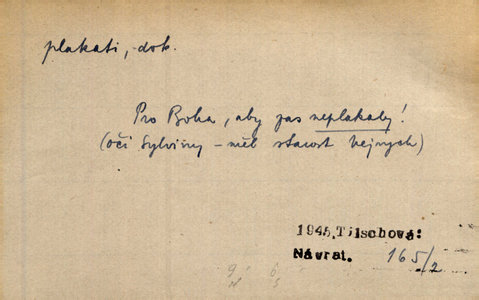 plakati, dok.
Pro Boha, aby zas neplakaly!
(oči Sylviny – měl starost Hejnych)
1945, Tilschová:
Návrat. 165/2